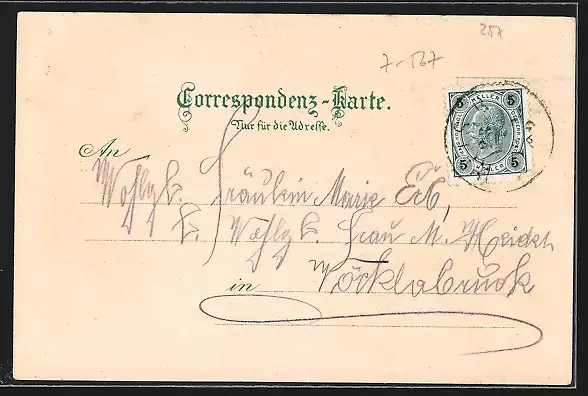 257
7-567
Correspondenz-Karte.
Nur für die Adresse.
5 HELLER 5
5 5
An
Wohlgb. Fräulein Marie Erb,
Wohlgb. Frau M.
in Vöcklabruck